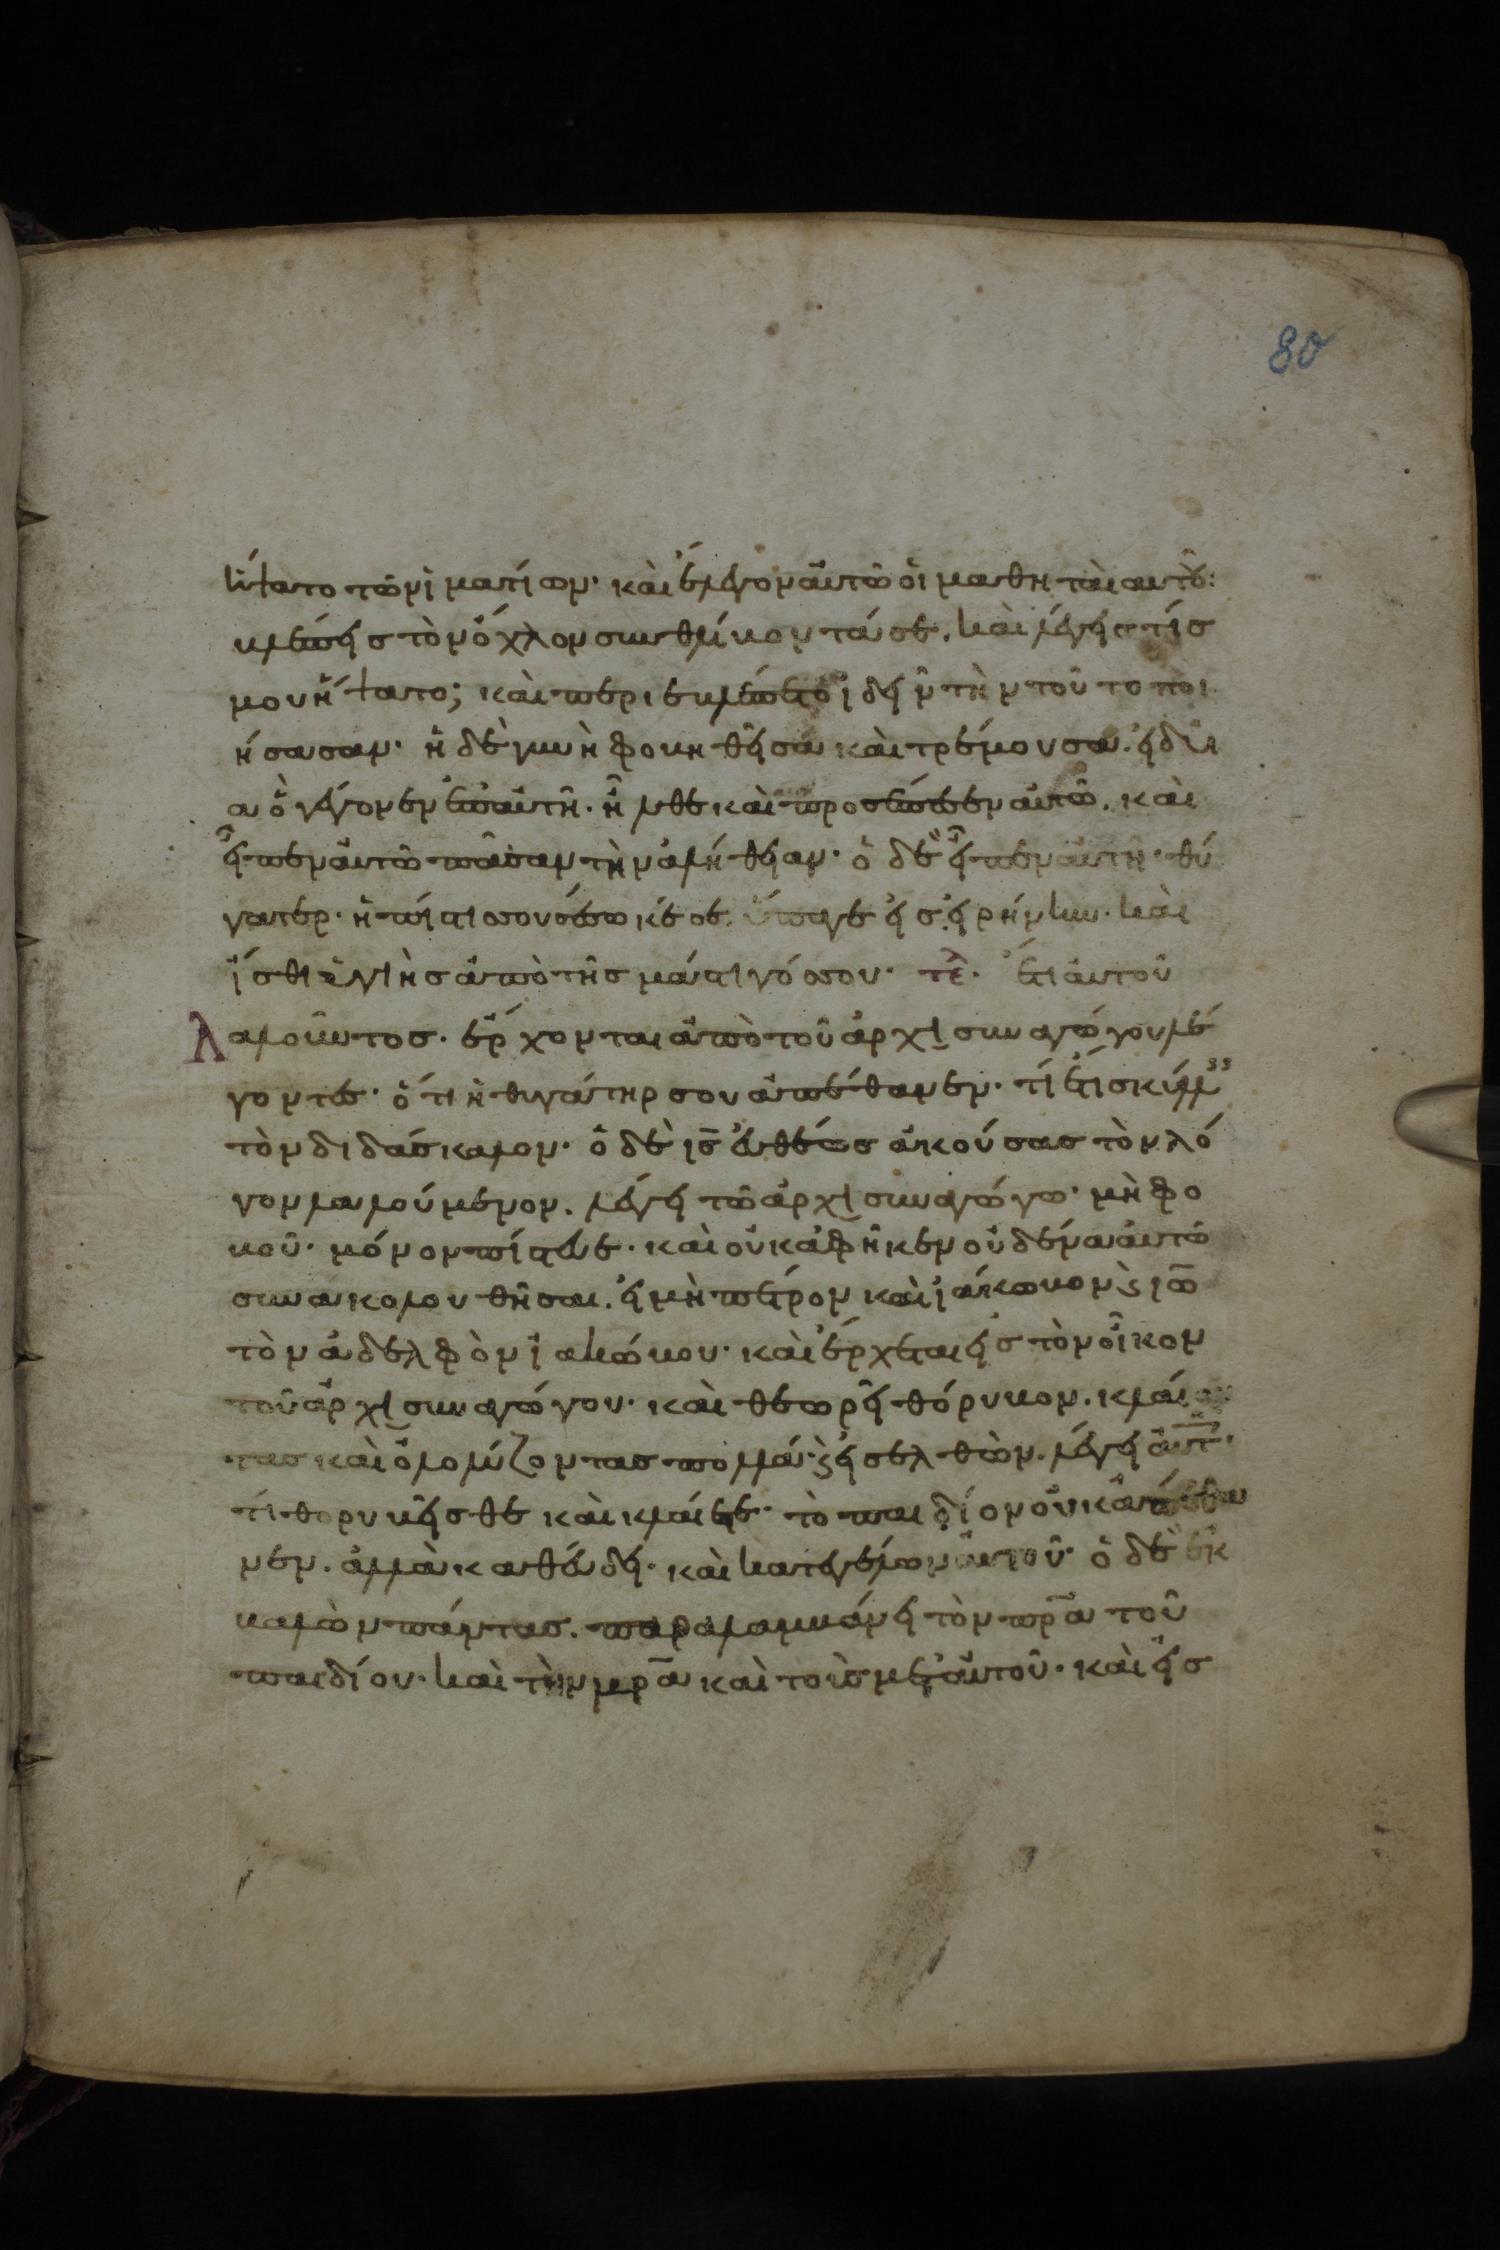 80
ἥψατο τῶν ἱματίων· καὶ ἔλεγον αὐτῶ οἱ μαθηταὶ αὐτοῦ:
βλέπεις τὸν ὄχλον συνθλίβοντά σε. καὶ λέγεις τίς
μου ἥψατο; καὶ περιεβλέπετο ἰδεῖν τὴν τοῦτο ποι
ήσασαν· ἡ δὲ γυνὴ φοβηθεῖσα καὶ τρέμουσα. εἰδυῖ
α ὃ γέγονεν ἐπ αὐτῆ. ἦλθε καὶ προσέπεσεν αὐτῶ. καὶ
εἶπεν αὐτῶ πᾶσαν τὴν ἀλήθειαν· ὁ δὲ εἶπεν αὐτῆ· θύ
γατερ· ἡ πίστις σου σέσωκέ σε. ὕπαγε εἰς εἰρήνην. καὶ
ἴσθι ὑγιὴς ἀπὸ τῆς μάστιγός σου· τε̅λ· ἔτι αὐτοῦ
λαλοῦντος. ἔρχονται ἀπὸ τοῦ ἀρχισυναγώγου λέ
γοντες· ὅτι ἡ θυγάτηρ σου ἀπέθανεν. τί ἔτι σκύλλεις
τὸν διδάσκαλον· ὁ δὲ ι̅ς̅ εὐθέως ἀκούσας τὸν λό
γον λαλούμενον. λέγει τῶ ἀρχισυναγώγω· μὴ φο
βοῦ· μόνον πίστευε. καὶ οὐκ ἀφῆκεν οὐδένα αὐτῶ
συνακολουθῆσαι. εἰ μὴ πέτρον καὶ ἰάκωβον ϗ ιω̅
τὸν ἀδελφὸν ἰακώβου· καὶ ἔρχεται εἰς τὸν οἶκον
τοῦ ἀρχισυναγώγου· καὶ θεωρεῖ θόρυβον. κλαίον
τας καὶ ὀλολύζοντας πολλά· ϗ εἰσελθὼν. λέγει αὐτ·
τί θορυβεῖσθε καὶ κλαίετε· τὸ παιδίον οὐκ ἀπέθα
νεν. ἀλλὰ καθεύδει· καὶ κατεγέλων αὐτοῦ· ὁ δὲ ἐκ
βαλὼν πάντας. παραλαμβάνει τὸν πρ̅α τοῦ
παιδίου· καὶ τὴν μρ̅α καὶ τοὺς μετ αὐτοῦ· καὶ εἰς